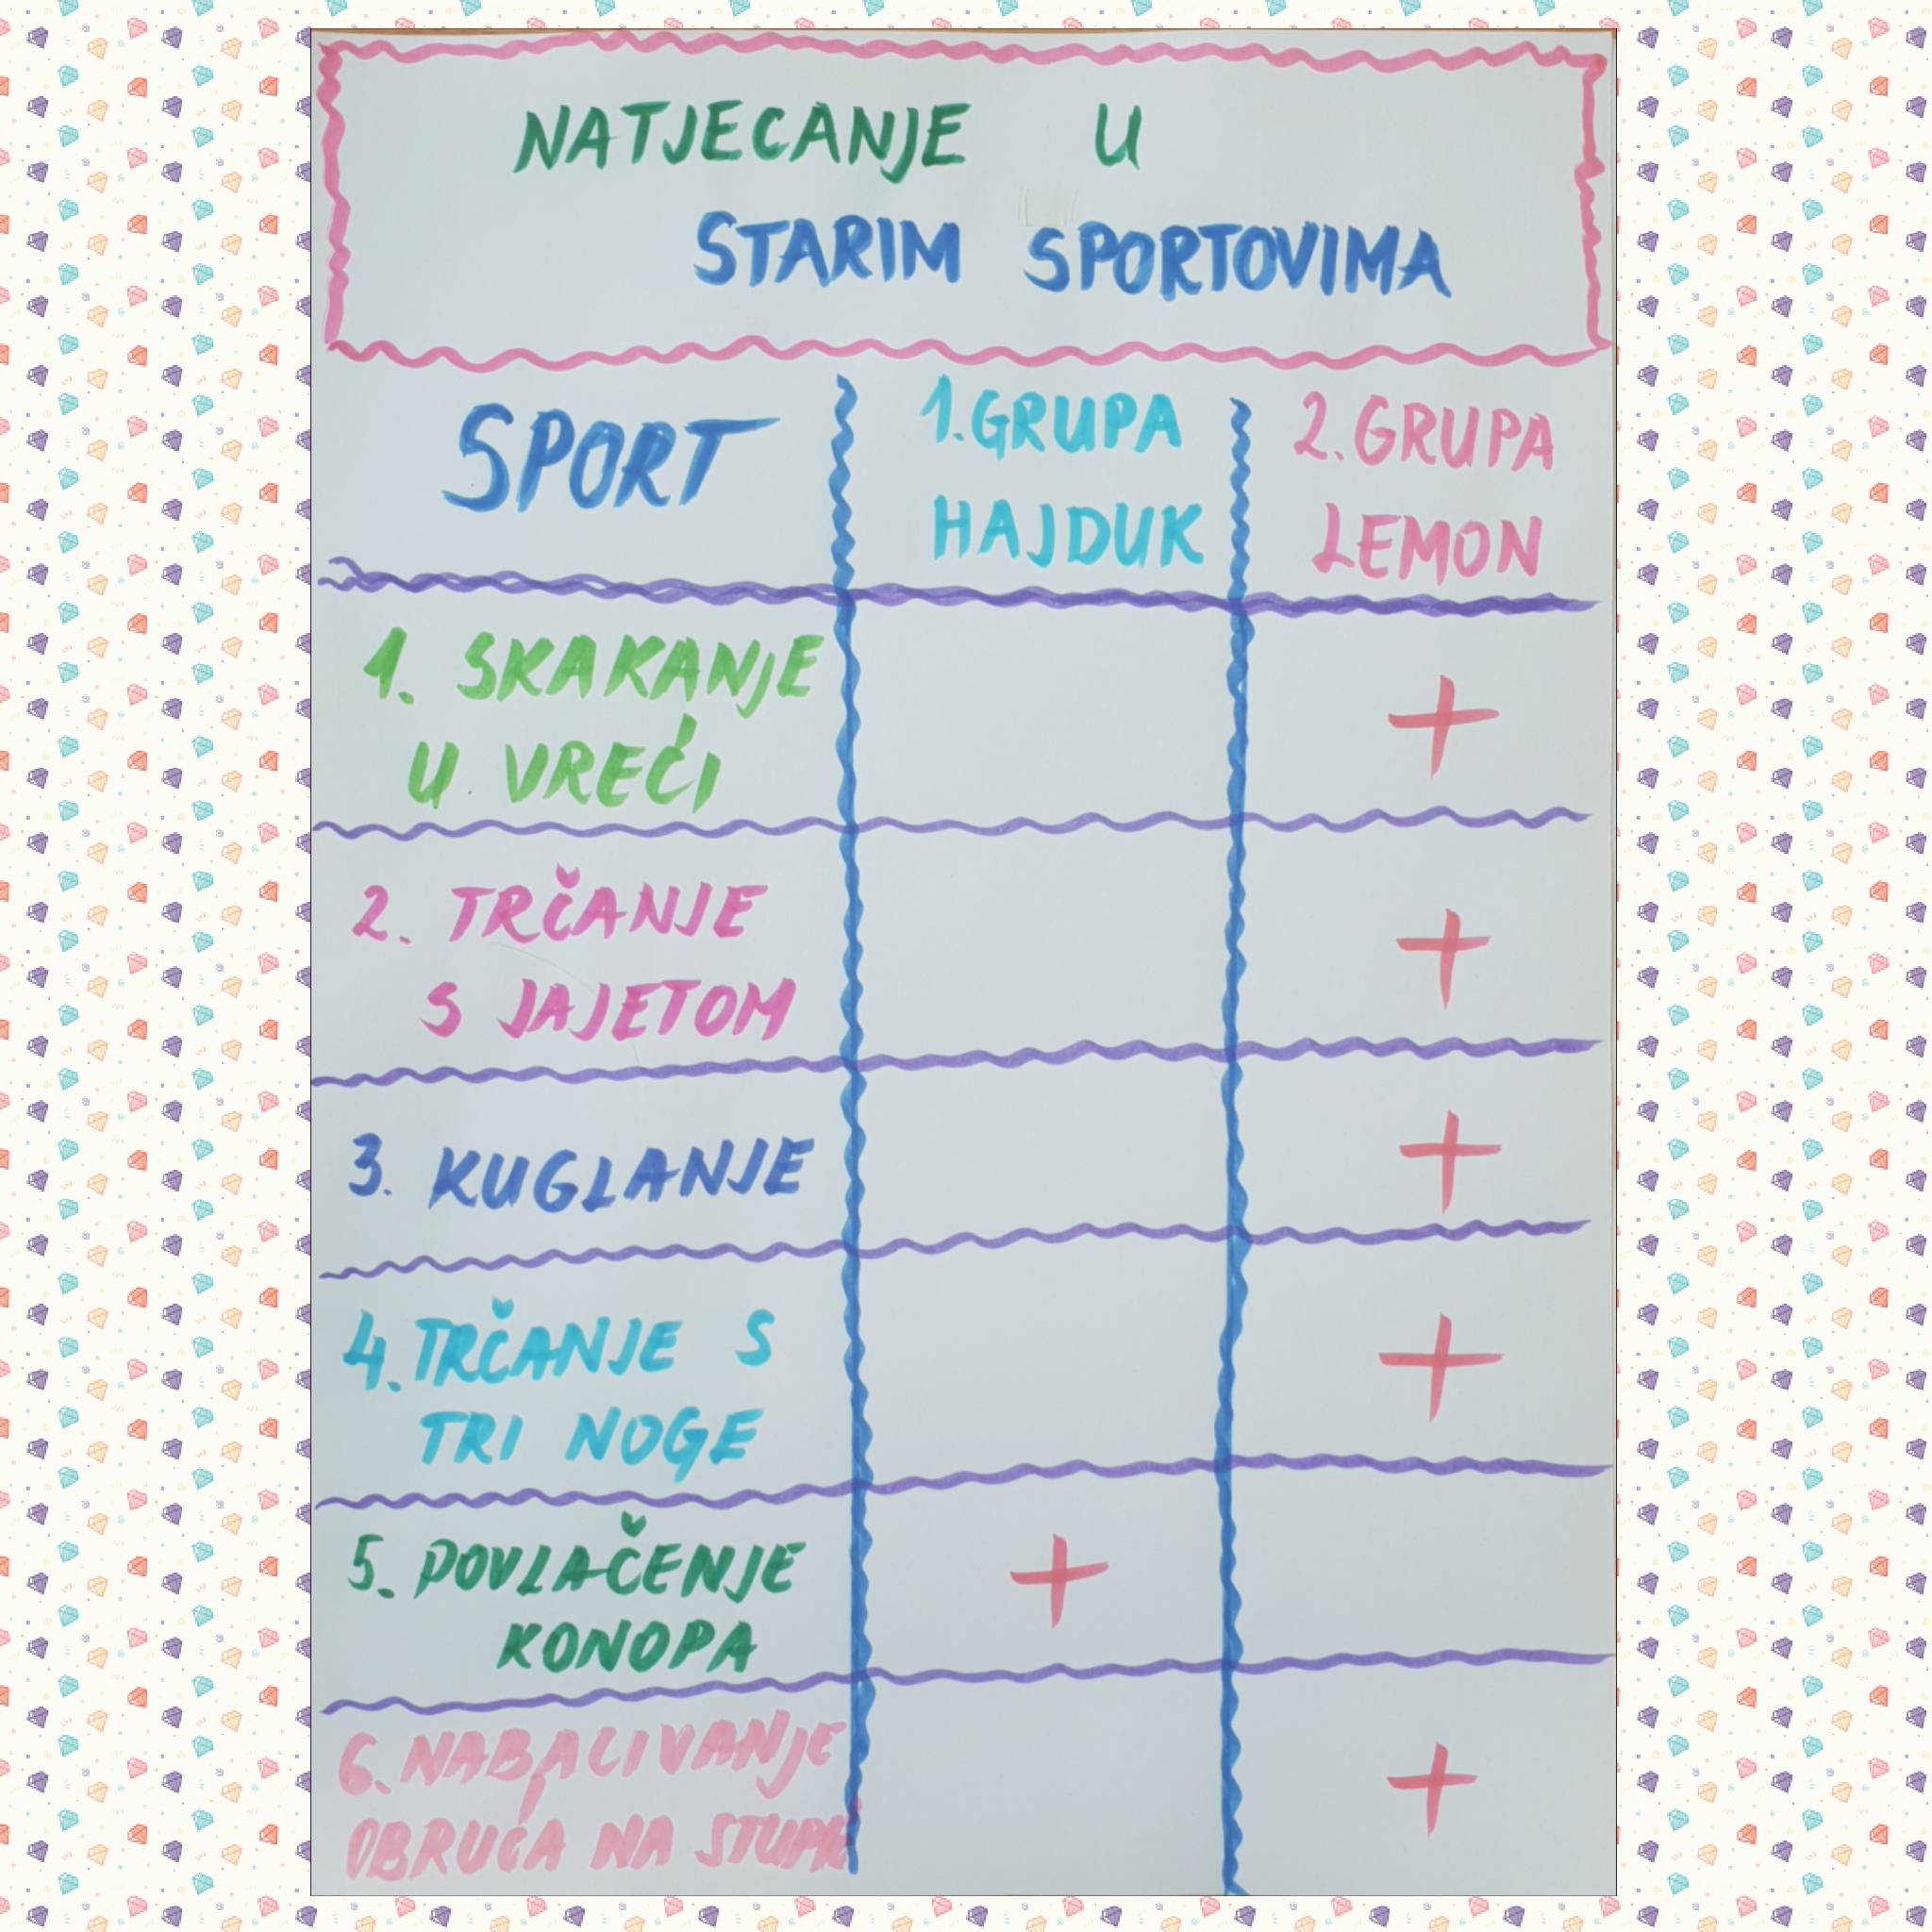 NATJECANJE U
STARIM SPORTOVIMA
SPORT
1. GRUPA
HAJDUK
2. GRUPA
LEMON
1. SKAKANJE
U VREĆI
+
2. TRČANJE
S JAJETOM
+
3. KUGLANJE
+
4. TRČANJE S
TRI NOGE
+
5. POVLAČENJE
KONOPA
+
6. NABACIVANJE
OBRUĆA NA
+